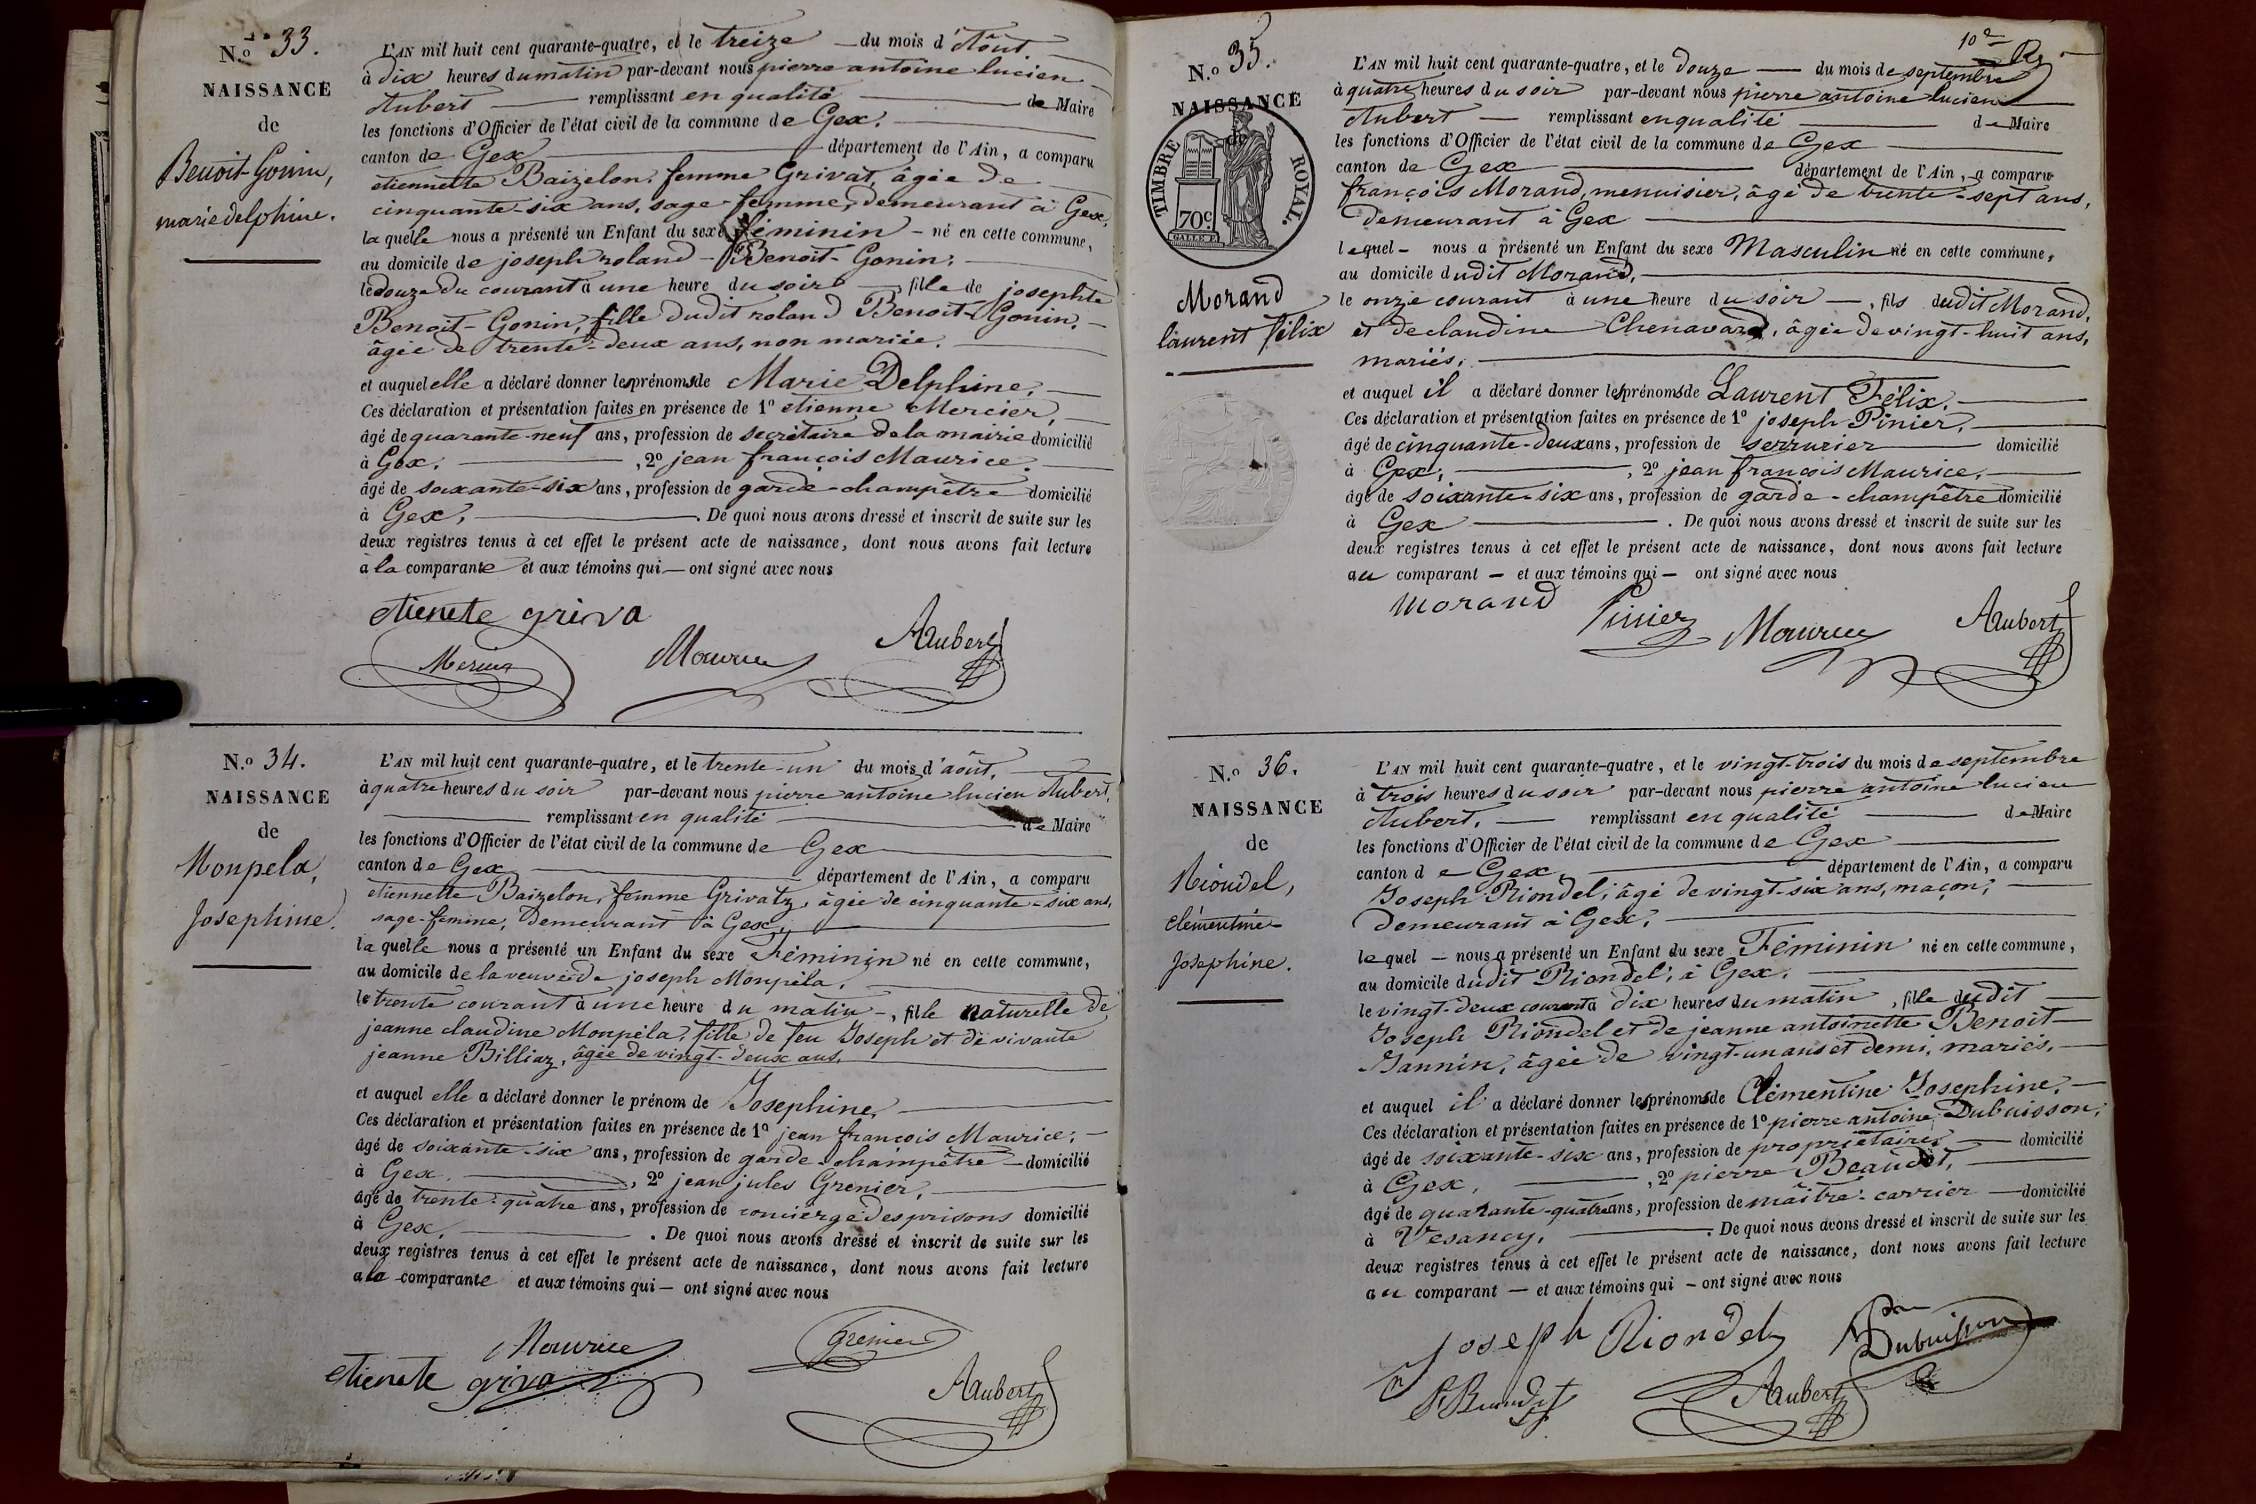 N.º 33.
NAISSANCE
de
Benoit-Gonin,
marie delphine.
L'AN mil huit cent quarante-quatre, et le treize du mois d'Aôut
à dix heures du matin par-devant nous pierre antoine lucien
Aubert remplissant en qualité de Maire
les fonctions d'Officier de l'état civil de la commune de Gex.
canton de Gex département de l'Ain, a comparu
etiennette Baizelon, femme Grivat, âgée de
cinquante-six ans, sage-femme, demeurant à Gex,
laquelle nous a présenté un Enfant du sexe féminin né en cette commune,
au domicile de joseph roland Benoit-Gonin.
le douze du courant à une heure du soir, fille de josephte
Benoit-Gonin, fille dudit roland Benoit-Gonin.
âgée de trente-deux ans, non mariée.
et auquel elle a déclaré donner les prénoms de Marie Delphine.
Ces déclaration et présentation faites en présence de 1º etienne Mercier,
âgé de quarante-neuf ans, profession de secrétaire de la mairie domicilié
à Gex. , 2º jean françois Maurice.
âgé de soixante-six ans, profession de garde-champêtre domicilié
à Gex. . De quoi nous avons dressé et inscrit de suite sur les
deux registres tenus à cet effet le présent acte de naissance, dont nous avons fait lecture
à la comparante et aux témoins qui — ont signé avec nous
etienete griva
Mercier Maurice Aubert
N.º 34.
NAISSANCE
de
Monpela,
Josephine.
L'AN mil huit cent quarante-quatre, et le trente-un du mois d'août,
à quatre heures du soir par-devant nous pierre antoine lucien Aubert,
remplissant en qualité de Maire
les fonctions d'Officier de l'état civil de la commune de Gex
canton de Gex département de l'Ain, a comparu
etiennette Baizelon, femme Grivatz, âgée de cinquante-six ans,
sage-femme, demeurant à Gex,
laquelle nous a présenté un Enfant du sexe Féminin né en cette commune,
au domicile de la veuve de joseph Monpéla,
le trente courant à une heure du matin —, fille naturelle de
jeanne claudine Monpéla, fille de feu Joseph et de vivante
jeanne Billiaz, âgée de vingt-deux ans.
et auquel elle a déclaré donner le prénom de Josephine,
Ces déclaration et présentation faites en présence de 1º jean françois Maurice,
âgé de soixante-six ans, profession de garde-champêtre — domicilié
à Gex. , 2º jean jules Grenier,
âgé de trente-quatre ans, profession de concierge des prisons domicilié
à Gex. . De quoi nous avons dressé et inscrit de suite sur les
deux registres tenus à cet effet le présent acte de naissance, dont nous avons fait lecture
à la comparante et aux témoins qui — ont signé avec nous
Maurice Grenier
etienete griva Aubert
10e
N.º 35.
NAISSANCE
de
TIMBRE ROYAL.
70c
Morand
laurent félix
L'AN mil huit cent quarante-quatre, et le douze — du mois de septembre
à quatre heures du soir par-devant nous pierre antoine lucien
Aubert — remplissant en qualité de Maire
les fonctions d'Officier de l'état civil de la commune de Gex
canton de Gex département de l'Ain, a comparu
françois Morand, menuisier, âgé de trente-sept ans,
demeurant à Gex
lequel — nous a présenté un Enfant du sexe Masculin né en cette commune,
au domicile dudit Morand,
le onze courant à une heure du soir —, fils dudit Morand,
et de claudine Chenavard, âgée de vingt-huit ans,
mariés.
et auquel il a déclaré donner les prénoms de Laurent Félix.
Ces déclaration et présentation faites en présence de 1º joseph Pinier,
âgé de cinquante-deux ans, profession de serrurier domicilié
à Gex, , 2º jean françois Maurice,
âgé de soixante-six ans, profession de garde-champêtre domicilié
à Gex . De quoi nous avons dressé et inscrit de suite sur les
deux registres tenus à cet effet le présent acte de naissance, dont nous avons fait lecture
au comparant — et aux témoins qui — ont signé avec nous
morand Pinier Maurice Aubert
N.º 36.
NAISSANCE
de
Riondel,
clémentine
Josephine.
L'AN mil huit cent quarante-quatre, et le vingt-trois du mois de septembre
à trois heures du soir par-devant nous pierre antoine lucien
Aubert, — remplissant en qualité de Maire
les fonctions d'Officier de l'état civil de la commune de Gex
canton de Gex, département de l'Ain, a comparu
Joseph Riondel, âgé de vingt-six ans, maçon,
demeurant à Gex,
lequel — nous a présenté un Enfant du sexe Féminin né en cette commune,
au domicile dudit Riondel, à Gex,
le vingt-deux courant à dix heures du matin, fille dudit
Joseph Riondel et de jeanne antoinette Benoit-
Jannin, âgée de vingt-un ans et demi, mariés.
et auquel il a déclaré donner les prénoms de Clémentine Josephine,
Ces déclaration et présentation faites en présence de 1º pierre antoine Dubuisson,
âgé de soixante-six ans, profession de propriétaire, — domicilié
à Gex, , 2º pierre Beaudet,
âgé de quarante-quatre ans, profession de maître-carrier — domicilié
à Vesancy, . De quoi nous avons dressé et inscrit de suite sur les
deux registres tenus à cet effet le présent acte de naissance, dont nous avons fait lecture
au comparant — et aux témoins qui — ont signé avec nous
joseph Riondel Dubuisson
Aubert